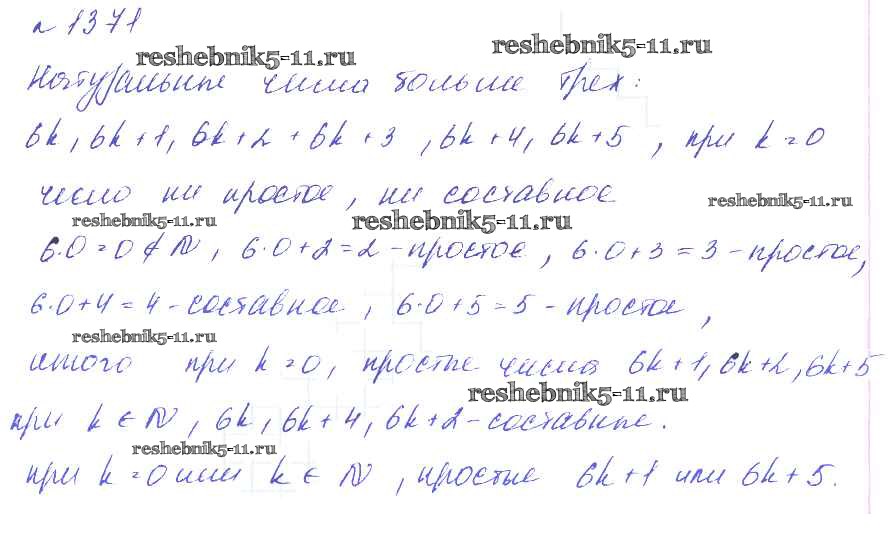 № 1371
reshebnik5-11.ru reshebnik5-11.ru
Натуральные числа больше трех:
6k, 6k+1, 6k+2 + 6k+3, 6k+4, 6k+5, при k=0
число ни простое, ни составное
reshebnik5-11.ru reshebnik5-11.ru reshebnik5-11.ru
6·0=0 ∉ N, 6·0+2=2 - простое, 6·0+3=3 - простое,
6·0+4=4 - составное, 6·0+5=5 - простое,
reshebnik5-11.ru
итого при k=0, простые числа 6k+1, 6k+2, 6k+5
reshebnik5-11.ru
при k ∈ N, 6k, 6k+4, 6k+2 - составные.
reshebnik5-11.ru
при k=0 или k ∈ N, простые 6k+1 или 6k+5.